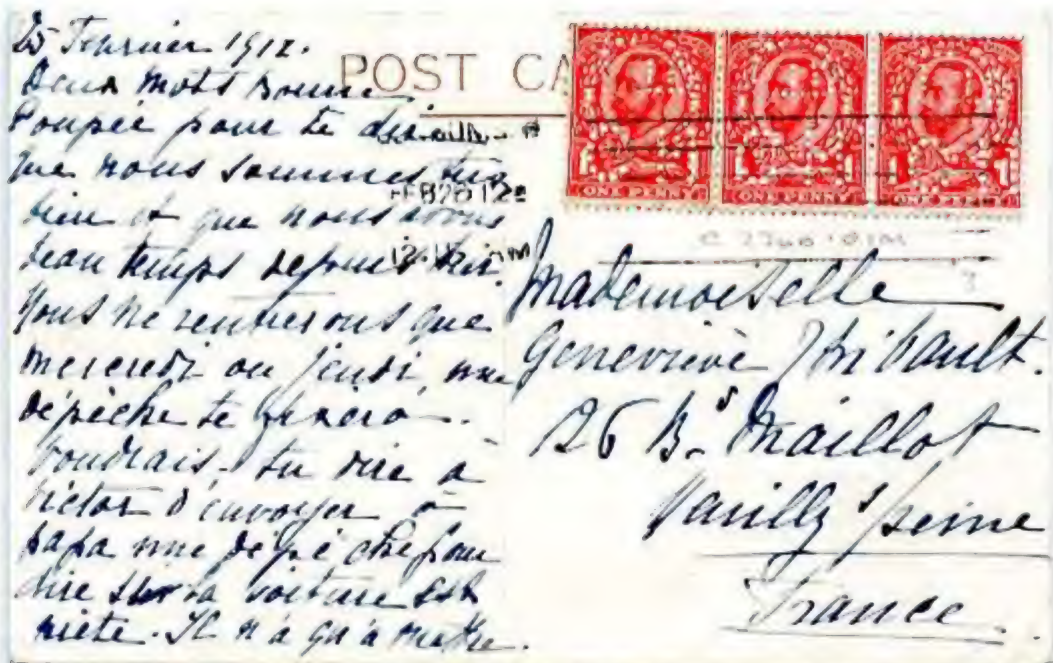 25 Fevrier 1912.
POST CA
Deux mots bonne
Poupée pour te dire
que nous sommes très
bien et que nous avons
beau temps depuis hier.
Nous ne rentrerons que
mercredi ou jeudi, une
dépêche te fixera.
Voudrais-tu dire à
Victor d'envoyer à
papa une dépêche pour
dire si la voiture est
prête. Il n'a qu'à mettre.
FEB 26 12
ONE PENNY
ONE PENNY
ONE PENNY
Mademoiselle
Geneviève Thibault.
26 Bd Maillot
Neuilly s/Seine
France.